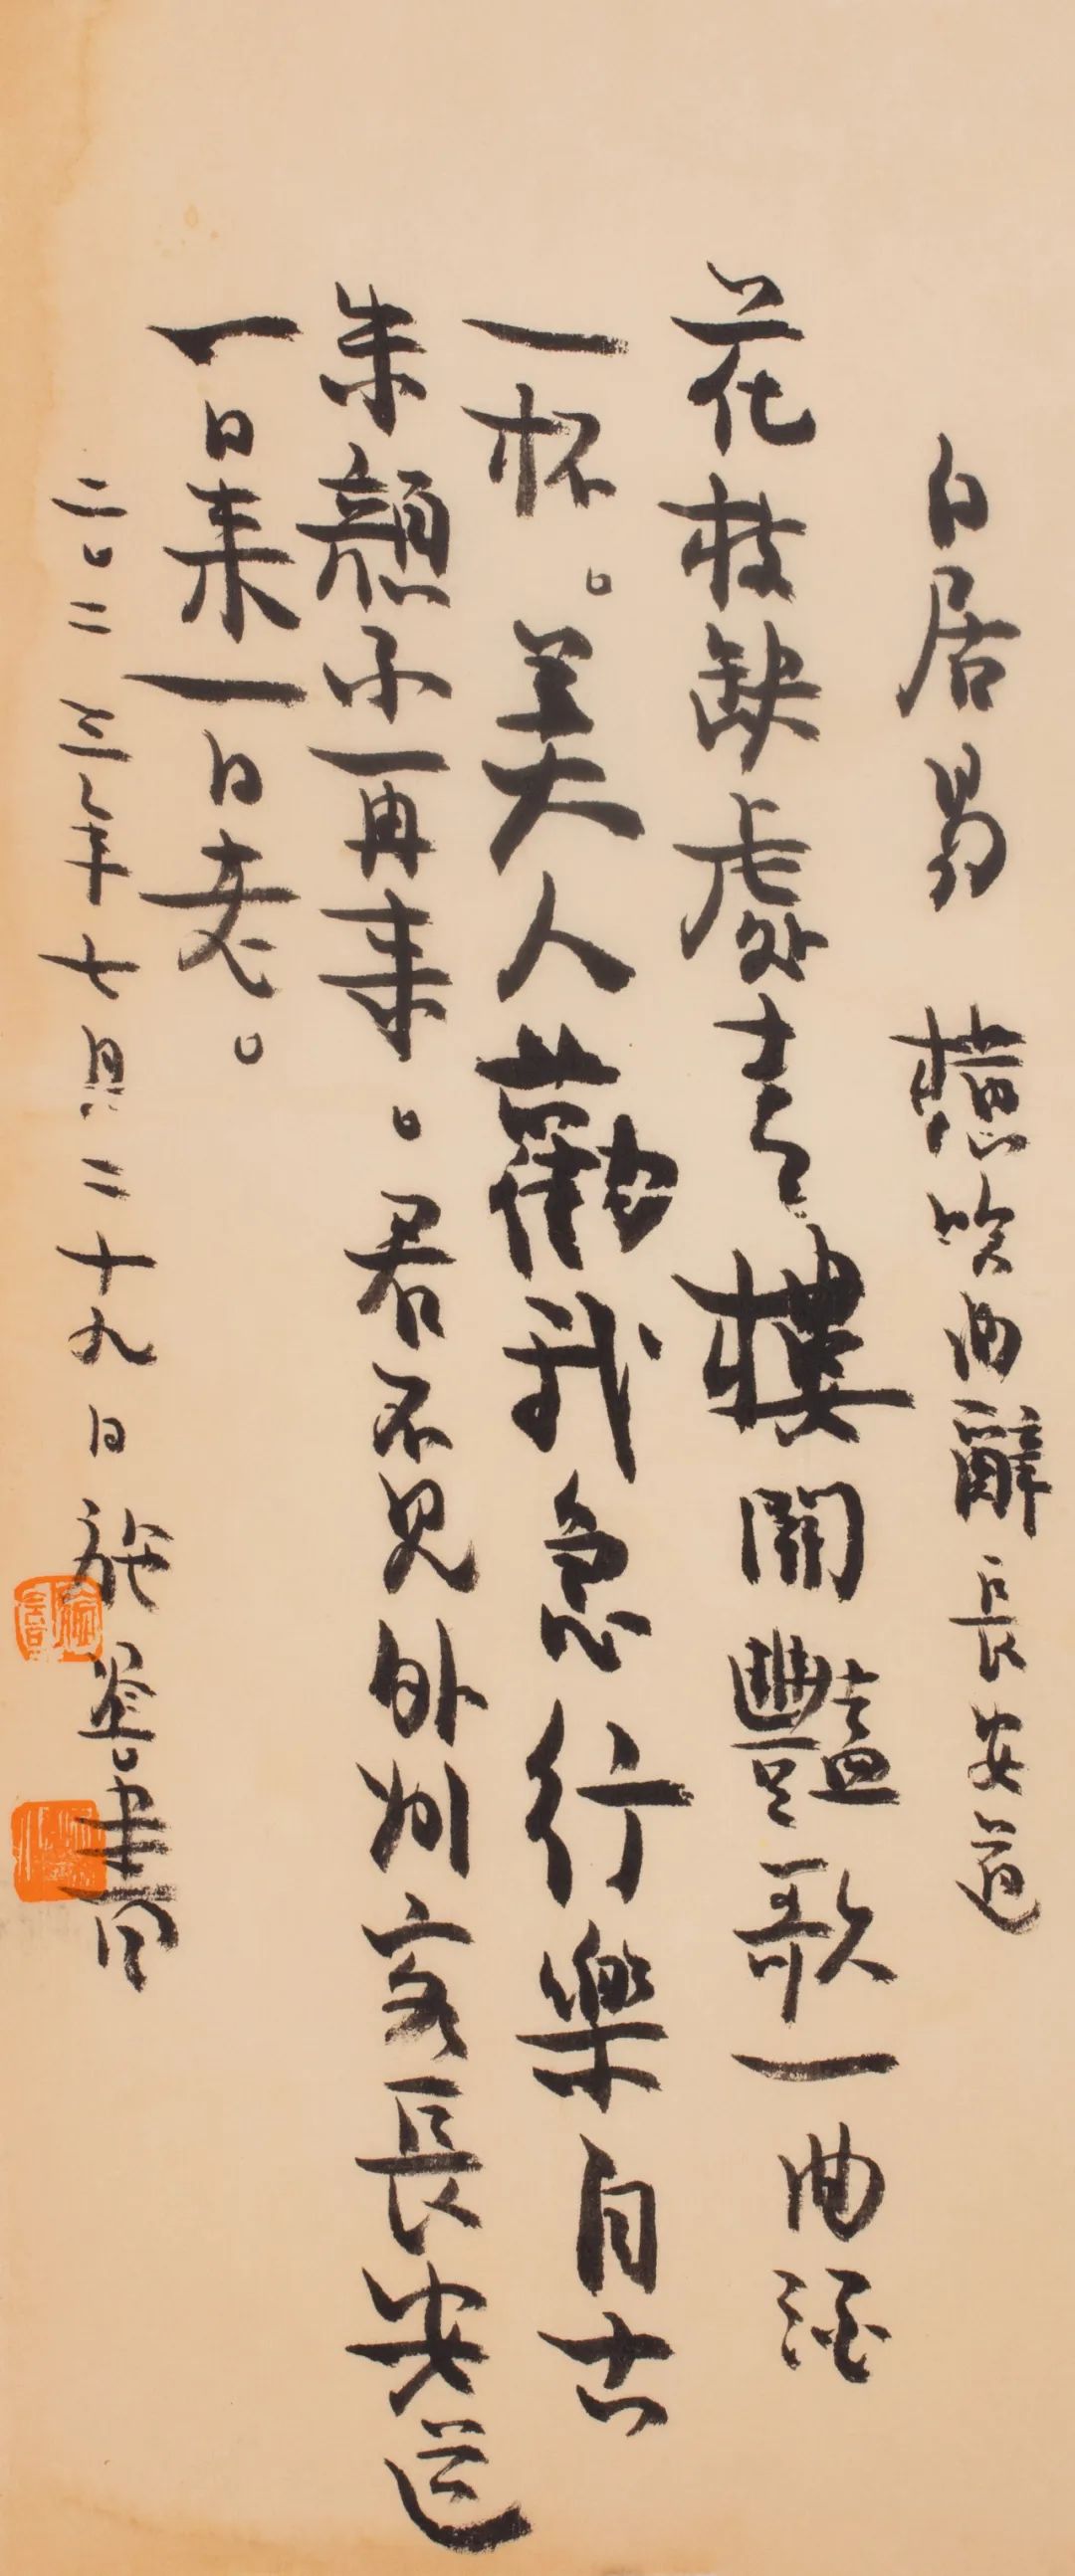 白居易 橫吹曲辭 長安道
花枝缺處青樓開豔歌一曲酒
一杯。美人勸我急行樂自古
朱顏不再來。君不見外州客長安道
一日來一日老。
二〇二三年七月二十九日施 書